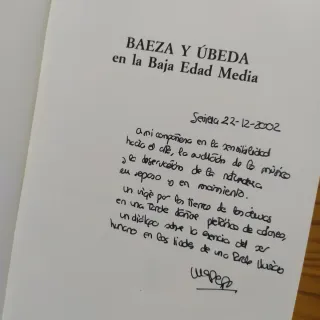 BAEZA Y ÚBEDA
en la Baja Edad Media
Sevilla 22-12-2002
a mi compañera en la sensibilidad
hacia el arte, la audición de la música
y la observación de la naturaleza
en reposo y en movimiento.
un viaje por las tierras de
en una tarde pletórica de colores,
un diálogo sobre la esencia del ser
humano en los de una